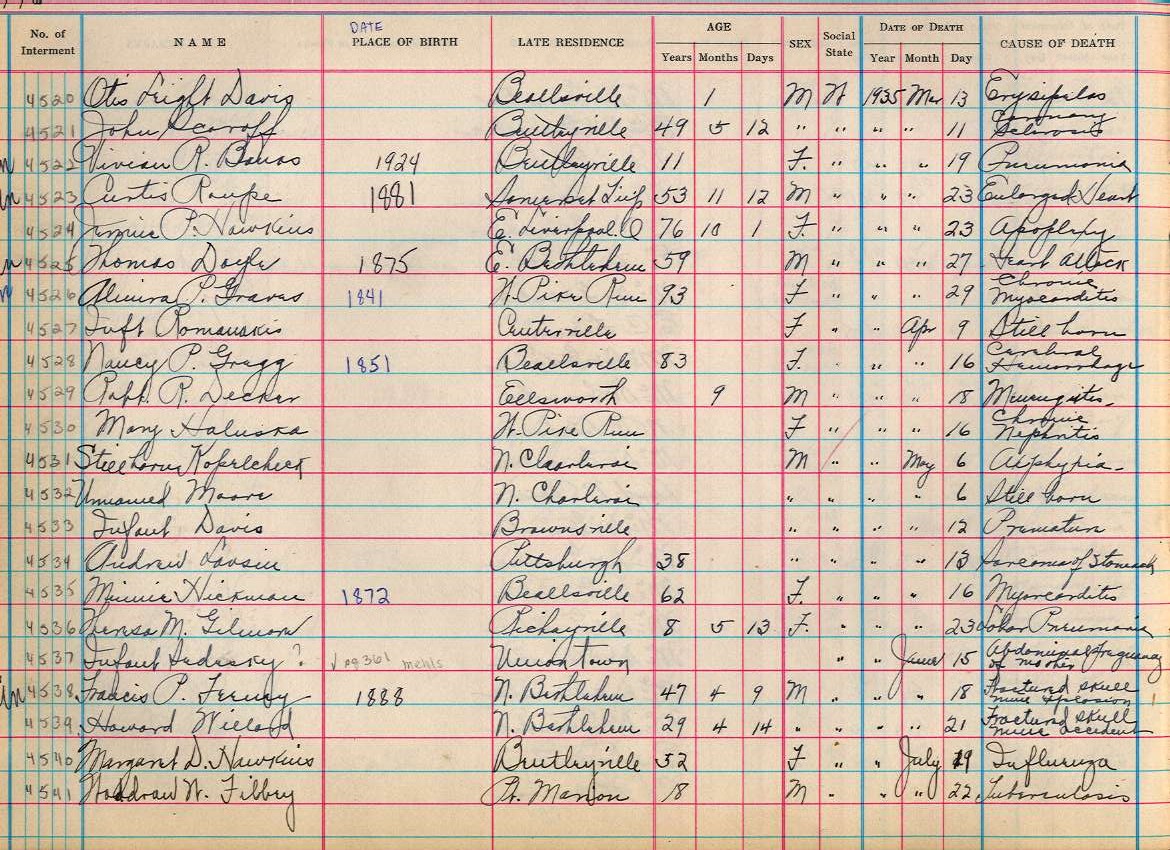 DATE
No. of Interment NAME PLACE OF BIRTH LATE RESIDENCE AGE Years Months Days SEX Social State DATE OF DEATH Year Month Day CAUSE OF DEATH
4520 Otis Leight Davis Beallsville 1 M W 1935 Mar 13 Erysipelas
4521 John Bentleyville 49 5 12 " " " " 11 Coronary Sclerosis
4522 Vivian R. Bentleyville 1924 11 F. " " " 19 Pneumonia
4523 Curtis Roupe 1881 Somerset Twp 53 11 12 M " " " 23 Enlarged Heart
4524 Jennie P. Hawkins E. Liverpool O 76 10 1 F. " " " 23 Apoplexy
4525 Thomas Doyle 1875 E. Bethlehem 59 M " " " 27 Heart Attack
4526 Almira P. Graves 1841 W. Pike Run 93 F " " " 29 Chronic Myocarditis
4527 Inft Romanskis Centerville F " " Apr 9 Still born
4528 Nancy P. Gregg 1851 Beallsville 83 F. " " " 16 Cerebral Hemorrhage
4529 R. Decker Ellsworth 9 M " " " 18 Meningitis
4530 Mary Haluska W. Pike Run F " " " 16 Chronic Nephritis
4531 Stillborn N. Charleroi M " " May 6
4532 Unnamed Moore N. Charleroi " " " " 6 Still born
4533 Infant Davis Brownsville " " " " 12 Premature
4534 Andrew Pittsburgh 38 " " " " 13 Sarcoma of Stomach
4535 Minnie Hickman 1872 Beallsville 62 F. " " " 16 Myocarditis
4536 Theresa M. Gilmore Richeyville 8 5 13 F. " " " 23 Lobar Pneumonia
4537 Infant ? √ pg 361 Uniontown " " June 15 Abdominal pregnancy of mother
4538 Francis P. 1888 N. Bethlehem 47 4 9 M " " " 18 Fractured skull mine explosion
4539 Howard Willard N. Bethlehem 29 4 14 " " " " 21 Fractured skull mine accident
4540 Margaret D. Hawkins Bentleyville 52 F " " July 19 Influenza
4541 Woodrow W. Filbey Pt. Marion 18 M " " " 22 Tuberculosis